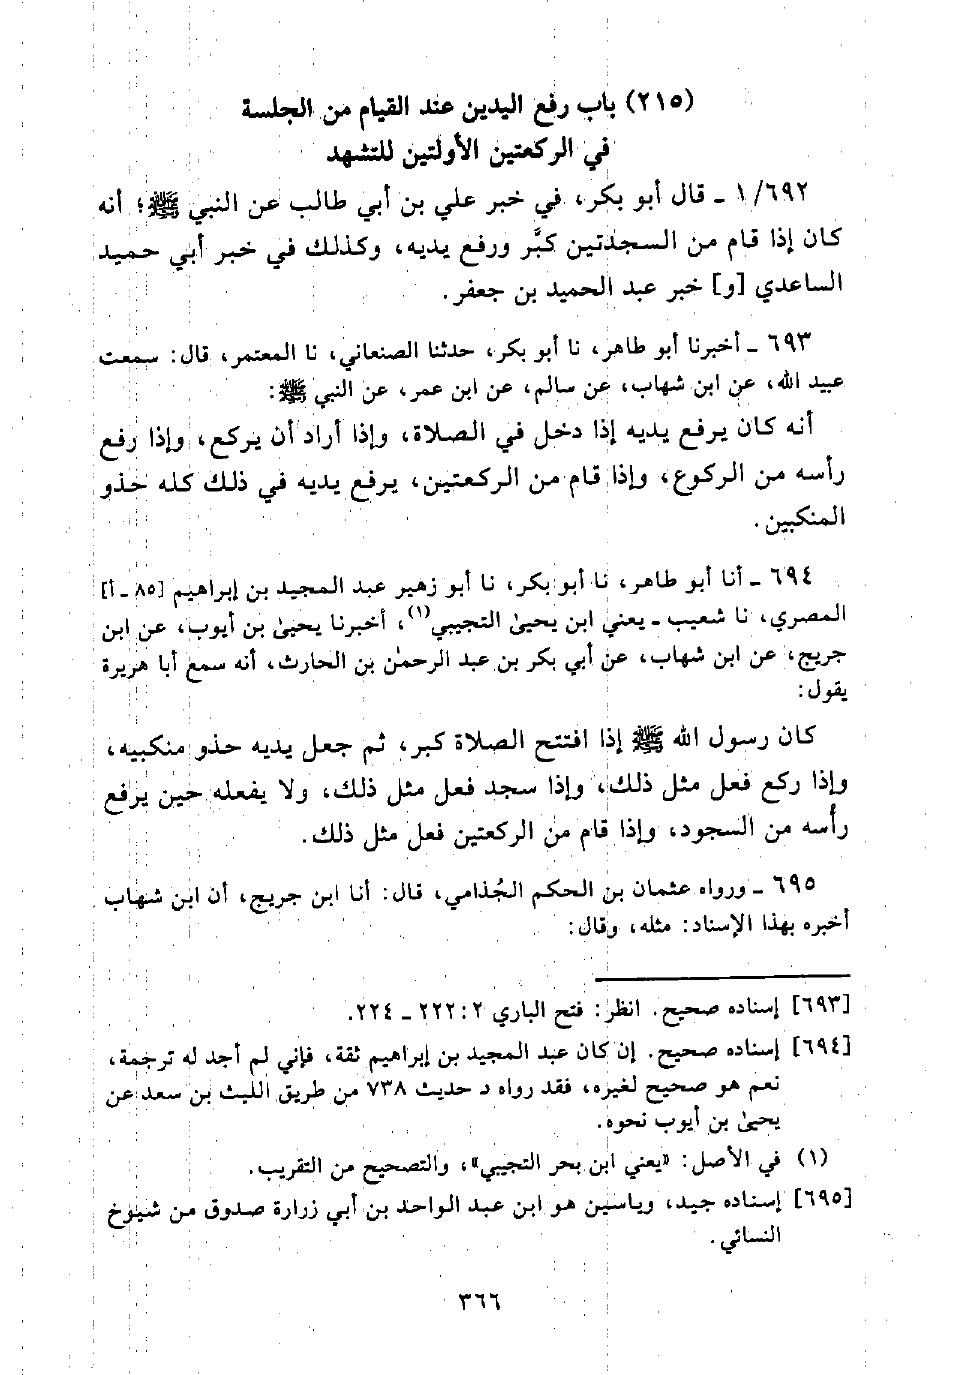 (٢١٥) باب رفع اليدين عند القيام من الجلسة
في الركعتين الأولتين للتشهد
١/٦٩٢ ـ قال أبو بكر، في خبر علي بن أبي طالب عن النبي ﷺ؛ أنه
كان إذا قام من السجدتين كبَّر ورفع يديه، وكذلك في خبر أبي حميد
الساعدي [و] خبر عبد الحميد بن جعفر.
٦٩٣ ـ أخبرنا أبو طاهر، نا أبو بكر، حدثنا الصنعاني، نا المعتمر، قال: سمعت
عبيد الله، عن ابن شهاب، عن سالم، عن ابن عمر، عن النبي ﷺ:
أنه كان يرفع يديه إذا دخل في الصلاة، وإذا أراد أن يركع، وإذا رفع
رأسه من الركوع، وإذا قام من الركعتين، يرفع يديه في ذلك كله حذو
المنكبين.
٦٩٤ ـ أنا أبو طاهر، نا أبو بكر، نا أبو زهير عبد المجيد بن إبراهيم [٨٥ ـ أ]
المصري، نا شعيب ـ يعني ابن يحيىٰ التجيبي(١)، أخبرنا يحيىٰ بن أيوب، عن ابن
جريج، عن ابن شهاب، عن أبي بكر بن عبد الرحمٰن بن الحارث، أنه سمع أبا هريرة
يقول:
كان رسول الله ﷺ إذا افتتح الصلاة كبر، ثم جعل يديه حذو منكبيه،
وإذا ركع فعل مثل ذلك، وإذا سجد فعل مثل ذلك، ولا يفعله حين يرفع
رأسه من السجود، وإذا قام من الركعتين فعل مثل ذلك.
٦٩٥ ـ ورواه عثمان بن الحكم الجُذامي، قال: أنا ابن جريج، أن ابن شهاب
أخبره بهذا الإسناد: مثله، وقال:
[٦٩٣] إسناده صحيح. انظر: فتح الباري ٢: ٢٢٢ ـ ٢٢٤.
[٦٩٤] إسناده صحيح. إن كان عبد المجيد بن إبراهيم ثقة، فإني لم أجد له ترجمة،
نعم هو صحيح لغيره، فقد رواه د حديث ٧٣٨ من طريق الليث بن سعد عن
يحيىٰ بن أيوب نحوه.
(١) في الأصل: «يعني ابن بحر التجيبي»، والتصحيح من التقريب.
[٦٩٥] إسناده جيد، وياسين هو ابن عبد الواحد بن أبي زرارة صدوق من شيوخ
النسائي.
٣٦٦